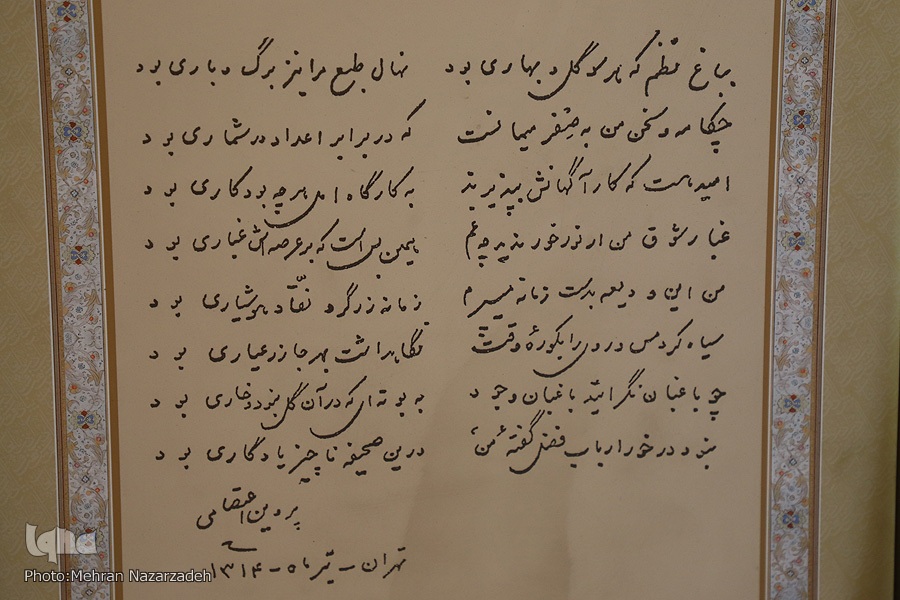 بباغ نظم که هر سو گل و بهاری بود    نهال طبع مرا نیز برگ و باری بود
چکامه و سخن من به صفر میمانست    که در برابر اعداد در شماری بود
امید هست که کار آگهانش بپذیرند    به کارگاه امل هر چه بود کاری بود
غبار شوق من ار نور خور ندید چه غم    همین بس است که بر عرصه‌اش غباری بود
من این ودیعه بدست زمانه میسپرم    زمانه زرگر و نقاد هوشیاری بود
سیاه کرد مس و روی را بکورهٔ وقت    نگاهداشت بهر جا زر عیاری بود
چو باغبان نگر ائیه باغبان وجود    به بوته‌ای که در آن گل نبود و خاری بود
نبود در خور ارباب فضل گفتهٔ من    درین صحیفهٔ ناچیز یادگاری بود
پروین اعتصامی
تهران - تیر ماه - ۱۳۱۴
iqna
Photo:Mehran Nazarzadeh